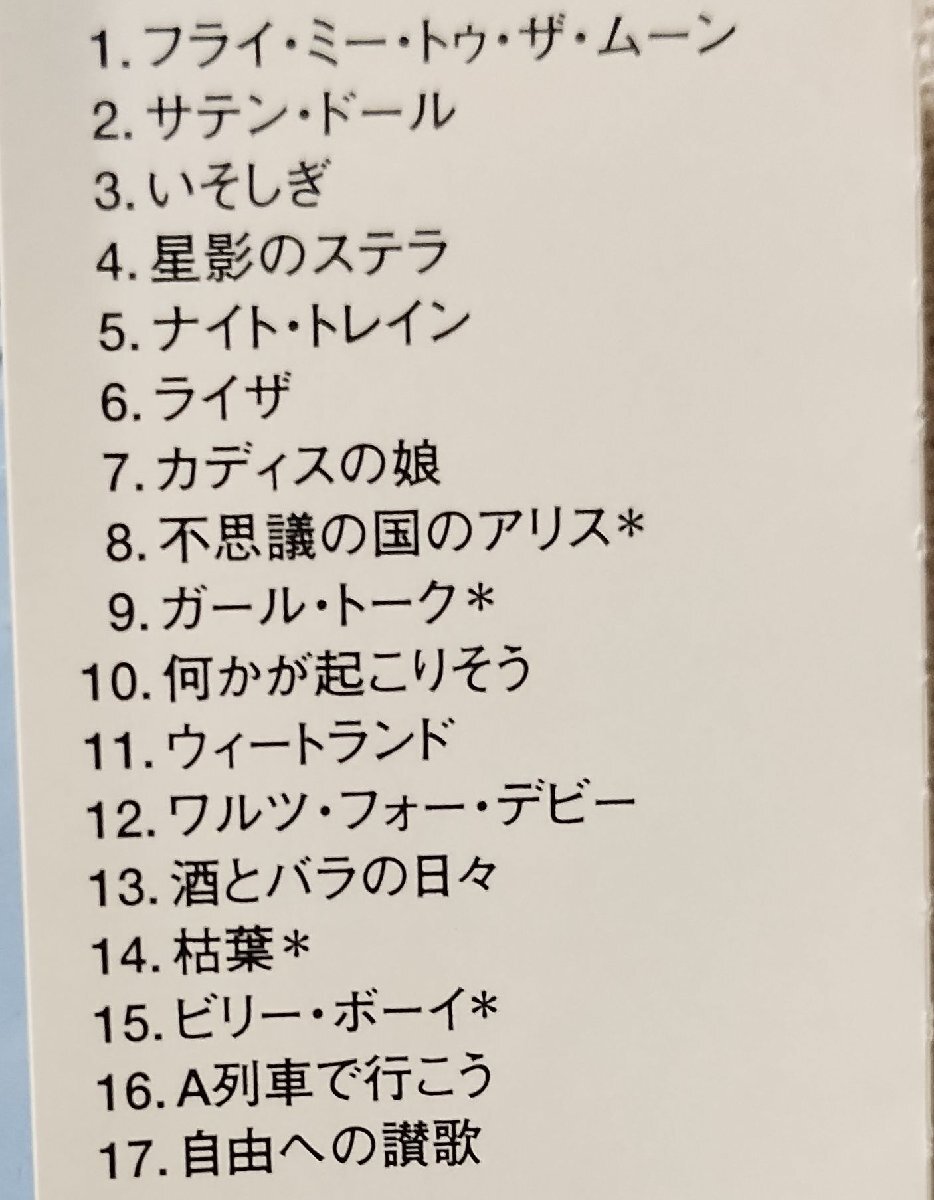 1. フライ・ミー・トゥ・ザ・ムーン
2. サテン・ドール
3. いそしぎ
4. 星影のステラ
5. ナイト・トレイン
6. ライザ
7. カディスの娘
8. 不思議の国のアリス*
9. ガール・トーク*
10. 何かが起こりそう
11. ウィートランド
12. ワルツ・フォー・デビー
13. 酒とバラの日々
14. 枯葉*
15. ビリー・ボーイ*
16. A列車で行こう
17. 自由への讃歌